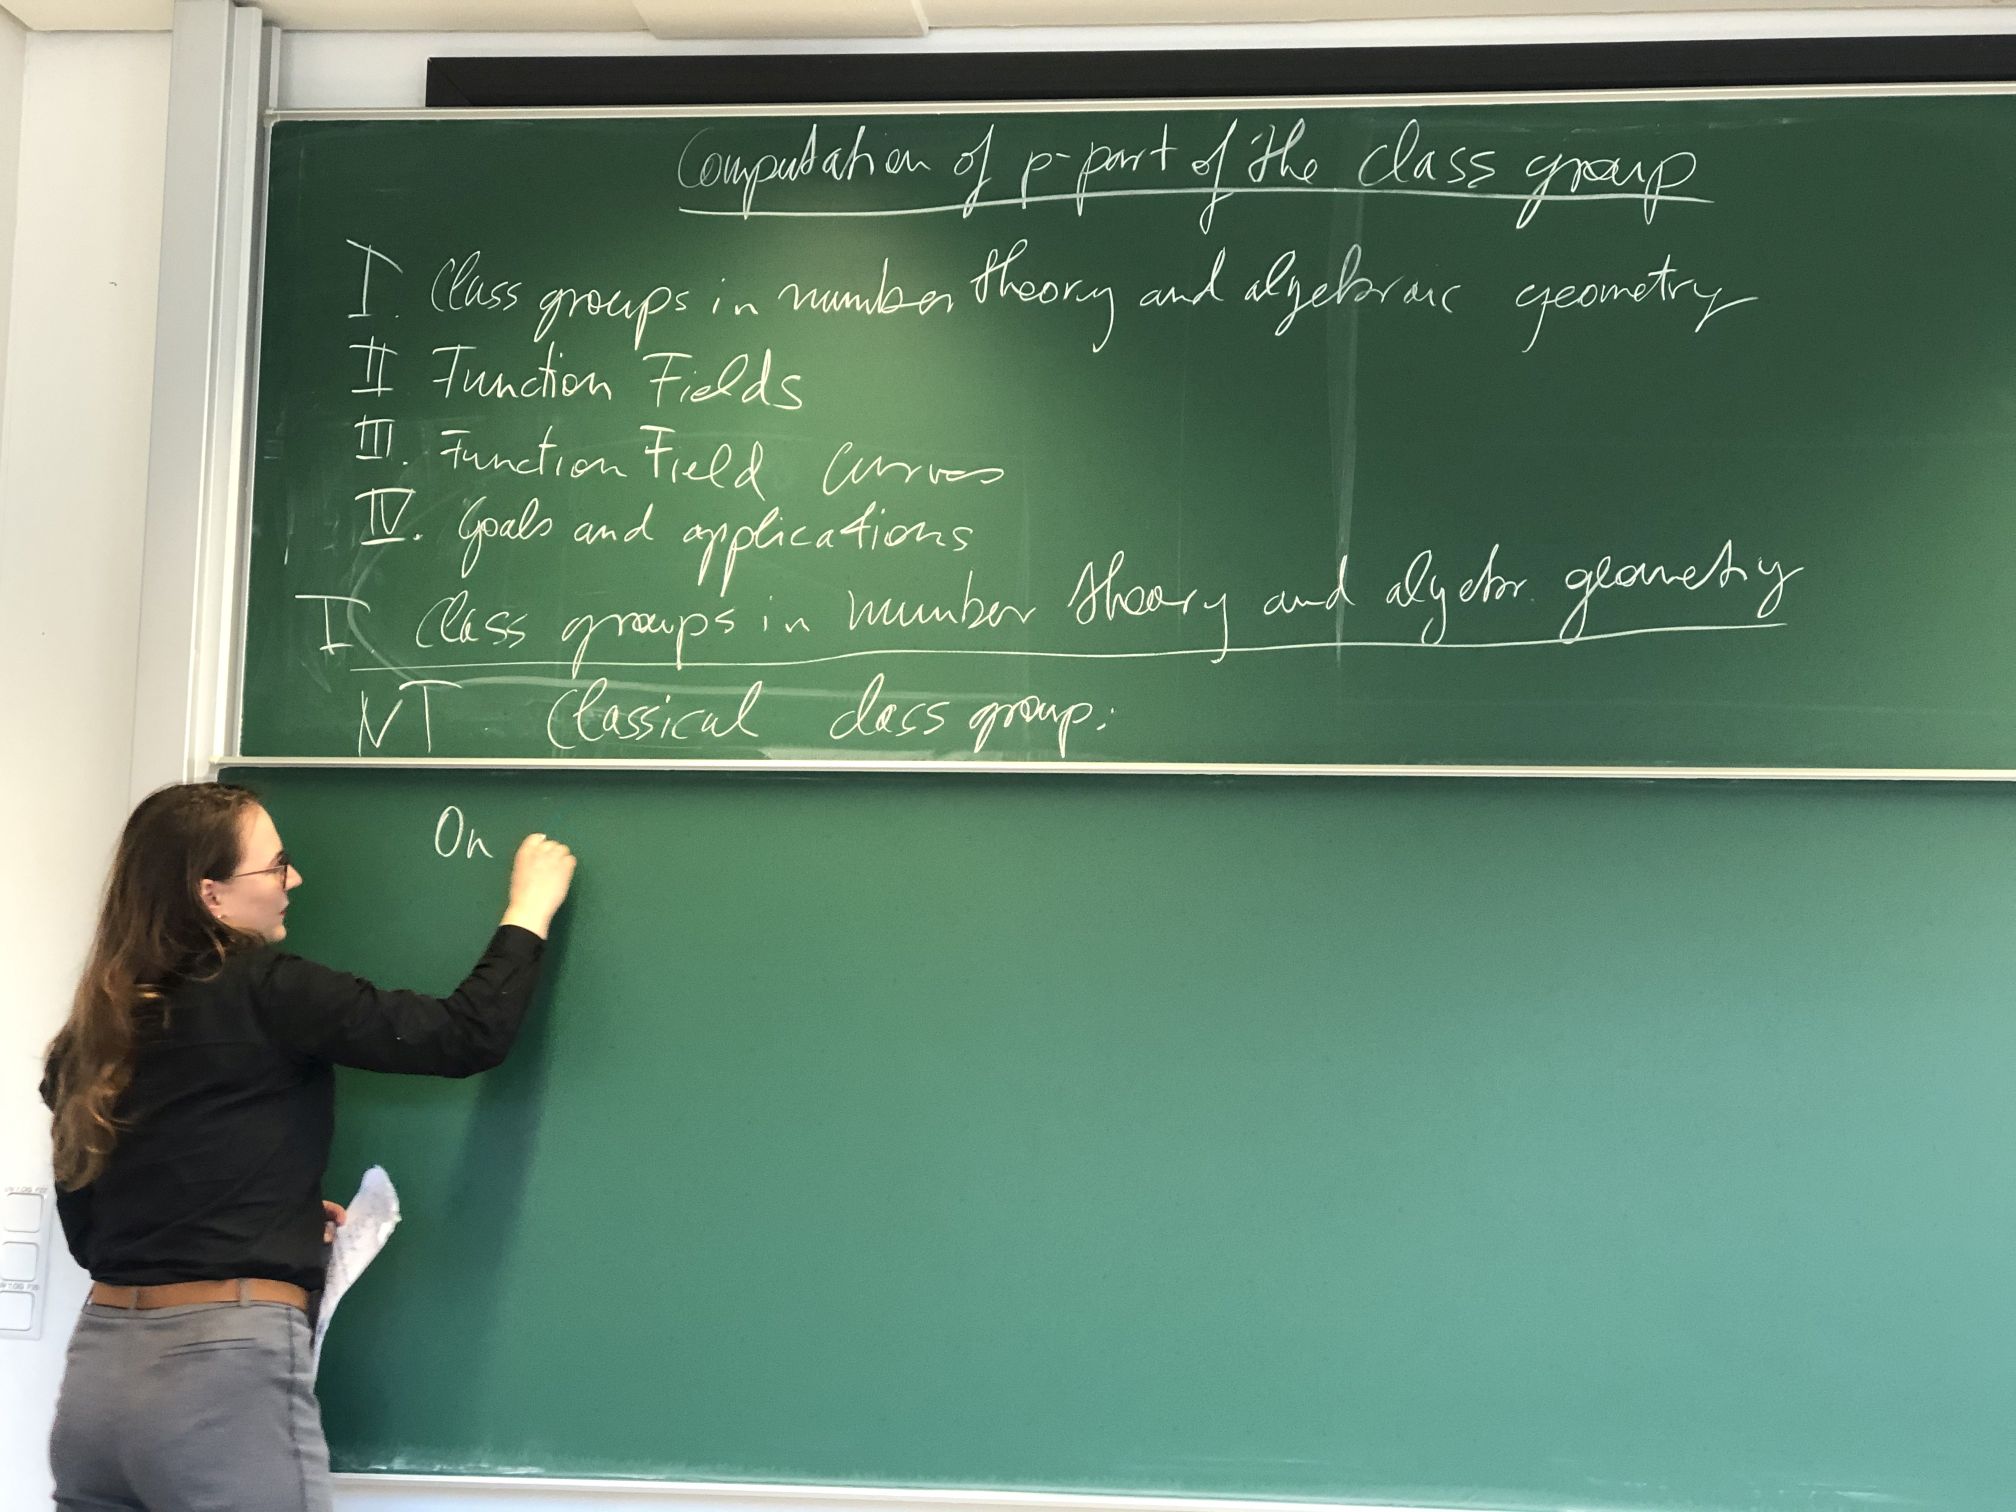 Computation of p-part of the class group
I. Class groups in number theory and algebraic geometry
II Function Fields
III. Function Field Curves
IV. Goals and applications
I Class groups in number theory and algebr. geometry
NT Classical class group:
On